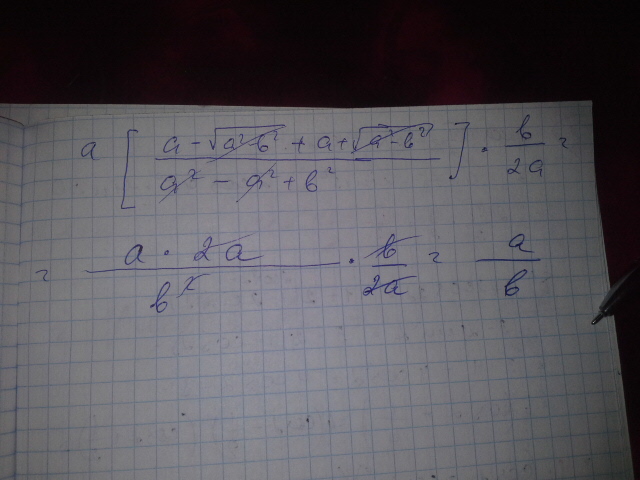 a [ (a - √(a² - b²) + a + √(a² - b²)) / (a² - a² + b²) ] · b/2a =
= (a · 2a) / b² · b/2a = a/b